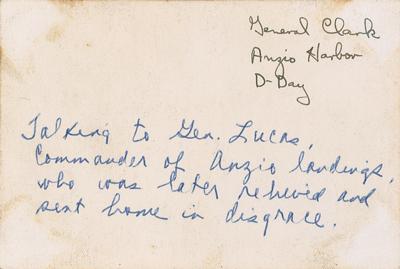 General Clark
Anzio Harbor
D-Day
Talking to Gen. Lucas,
Commander of Anzio landings,
who was later relieved and
sent home in disgrace.